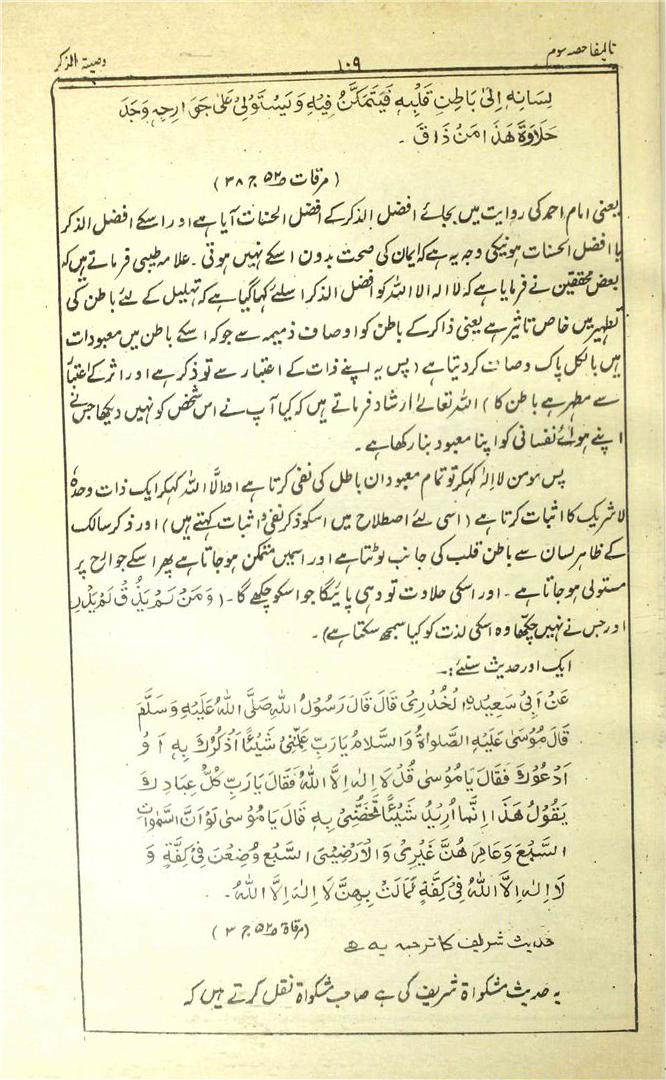 تالیفات حصہ سوم
۱۰۹
وصیۃ الذکر
لِسَانِہٖ اِلیٰ بَاطِنِ قَلْبِہٖ فَیَتَمَکَّنُ فِیْہِ وَیَسْتَوْلِیْ عَلیٰ جَوَارِحِہٖ وَجَدَ
حَلَاوَۃَ ھٰذَا مَنْ ذَاقَ ۔
(مرقات ص۵۲ ج ۳۸)
یعنی امام احمد کی روایت میں بجائے افضل الذکر کے افضل الحسنات آیا ہے اور اسکے افضل الذکر
یا افضل الحسنات ہونیکی وجہ یہ ہے کہ ایمان کی صحت بدون اسکے نہیں ہوتی ۔ علامہ طیبی فرماتے ہیں کہ
بعض محققین نے فرمایا ہے کہ لا الہ الا اللہ کو افضل الذکر اسلئے کہا گیا ہے کہ تہلیل کے لئے باطن کی
تطہیر میں خاص تاثیر ہے یعنی ذاکر کے باطن کو اوصاف ذمیمہ سے جو کہ اسکے باطن میں معبودات
ہیں بالکل پاک و صاف کر دیتا ہے (پس یہ اپنے ذات کے اعتبار سے تو ذکر ہے اور اثر کے اعتبار
سے مطہر ہے باطن کا) اللہ تعالےٰ ارشاد فرماتے ہیں کہ کیا آپ نے اس شخص کو نہیں دیکھا جس نے
اپنے ہوائے نفسانی کو اپنا معبود بنا رکھا ہے ۔
پس مومن لا الٰہ کہکر تو تمام معبودان باطل کی نفی کرتا ہے اور الَّا اللہ کہکر ایک ذات وحدہٗ
لا شریک کا اثبات کرتا ہے (اسی لئے اصطلاح میں اسکو ذکر نفی و اثبات کہتے ہیں) اور ذکر سالک
کے ظاہر لسان سے باطن قلب کی جانب لوٹتا ہے اور اسمیں متمکن ہو جاتا ہے پھر اسکے جوارح پر
مستولی ہو جاتا ہے ۔ اور اسکی حلاوت تو وہی پائیگا جو اسکو چکھے گا ۔ (وَمَنْ لَمْ یَذُقْ لَمْ یَدْرِ
اور جس نے نہیں چکھا وہ اسکی لذت کو کیا سمجھ سکتا ہے) ۔
ایک اور حدیث سنئے :۔
عَنْ اَبِیْ سَعِیْدِ ۨ الْخُدْرِیِّ قَالَ قَالَ رَسُوْلُ اللہِ صَلَّی اللہُ عَلَیْہِ وَسَلَّمَ
قَالَ مُوْسیٰ عَلَیْہِ الصَّلٰوۃُ وَالسَّلَامُ یَارَبِّ عَلِّمْنِیْ شَیْئًا اَذْکُرُکَ بِہٖ اَوْ
اَدْعُوْکَ فَقَالَ یَامُوْسیٰ قُلْ لَا اِلٰہَ اِلَّا اللہُ فَقَالَ یَارَبِّ کُلُّ عِبَادِکَ
یَقُوْلُ ھٰذَا اِنَّمَا اُرِیْدُ شَیْئًا تَخُصُّنِیْ بِہٖ قَالَ یَامُوْسیٰ لَوْ اَنَّ السَّمٰوَاتِ
السَّبْعَ وَعَامِرَ ھُنَّ غَیْرِیْ وَالْاَرْضِیْنَ السَّبْعَ وُضِعْنَ فِیْ کِفَّۃٍ وَ
لَا اِلٰہَ اِلَّا اللہُ فِیْ کِفَّۃٍ لَمَالَتْ بِھِنَّ لَا اِلٰہَ اِلَّا اللہُ ۔
(مرقاۃ ص۵۲ ج ۳)
حدیث شریف کا ترجمہ یہ ہے
یہ حدیث مشکواۃ شریف کی ہے صاحب مشکواۃ نقل کرتے ہیں کہ